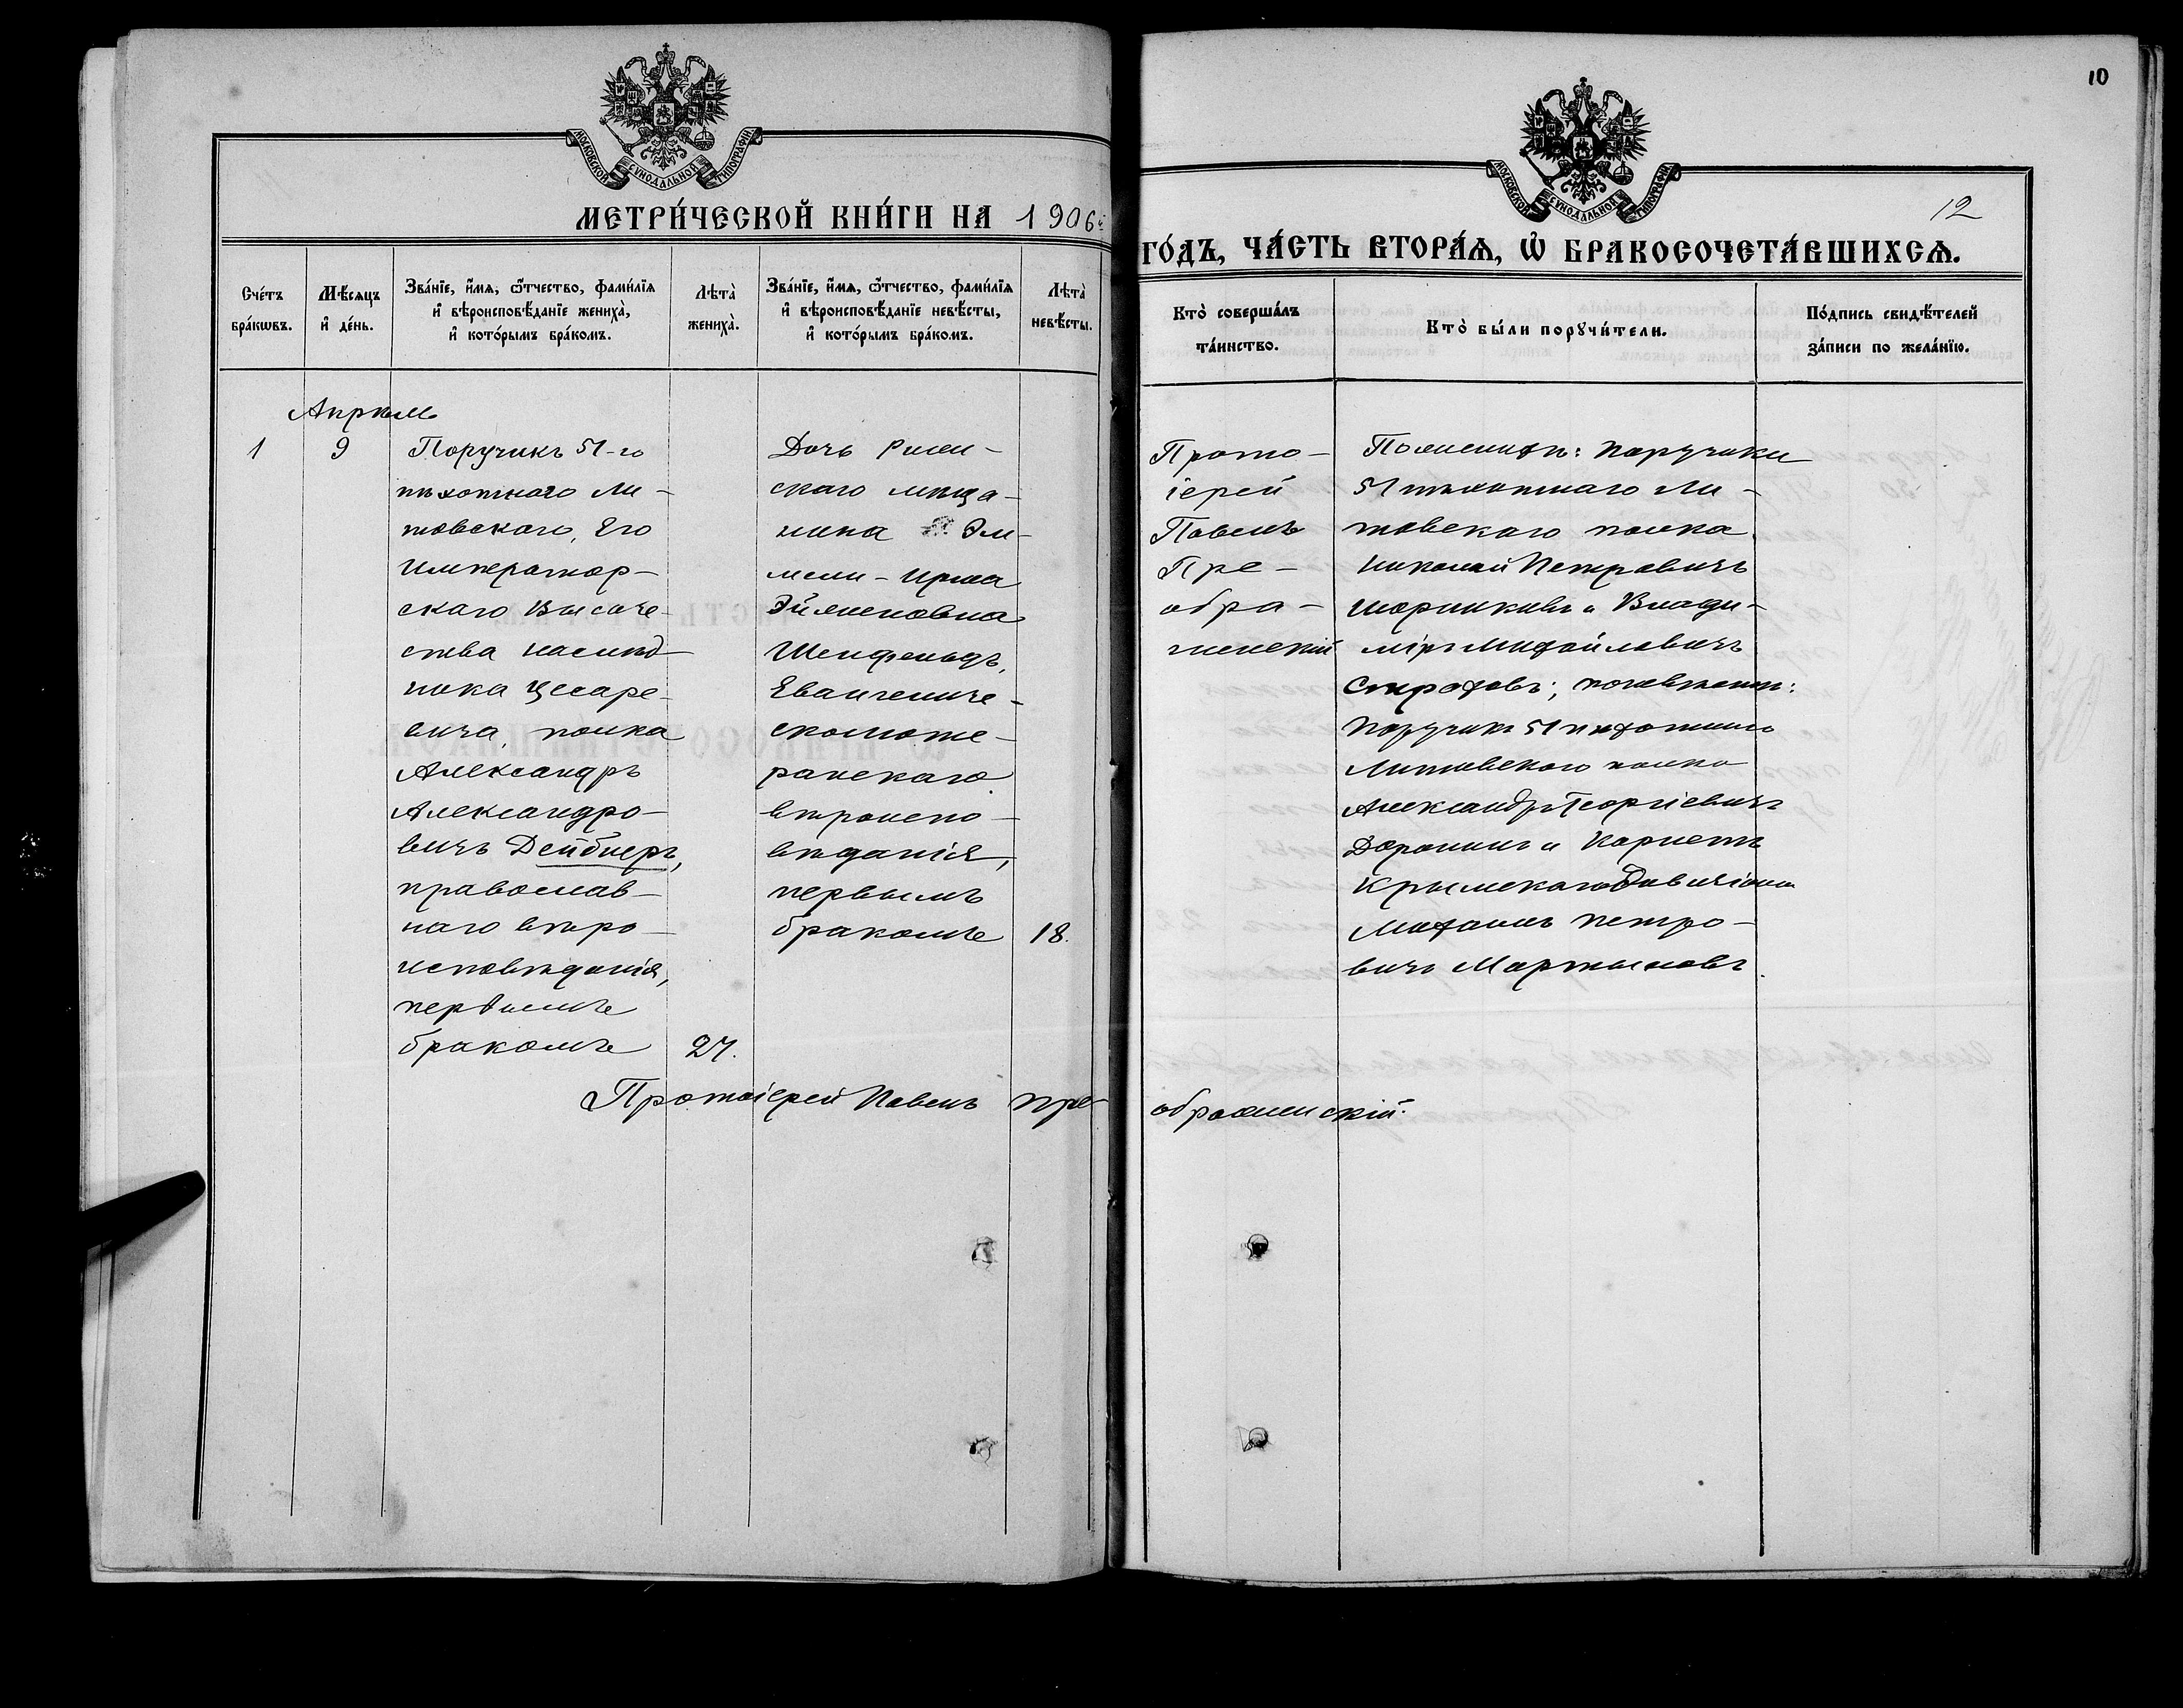 10
МОСКОВСКОЙ СѴНОДАЛЬНОЙ ТИПОГРАФІИ
МОСКОВСКОЙ СѴНОДАЛЬНОЙ ТИПОГРАФІИ
12
МЕТРИ́ЧЕСКОЙ КНИ́ГИ НА 1906
ГО́ДЪ, ЧА́СТЬ ВТОРА́Ѧ, Ѽ БРАКОСОЧЕТА́ВШИХСѦ.
Сче́тъ
бра́кѡвъ.
Мѣ́сѧцъ
и҆ де́нь.
Зва́нїе, и҆́мѧ, ѻ҆́тчество, фами́лїѧ
и҆ вѣроисповѣ́данїе жениха̀,
и҆ кото́рымъ бра́комъ.
Лѣта̀
жениха̀.
Зва́нїе, и҆́мѧ, ѻ҆́тчество, фами́лїѧ
и҆ вѣроисповѣ́данїе невѣ́сты,
и҆ кото́рымъ бра́комъ.
Лѣта̀
невѣ́сты.
Кто̀ соверша́лъ
та́инство.
Кто̀ бы́ли порꙋчи́тели.
По́дпись свидѣ́телей
за́писи по жела́нїю.
Апрѣль
1
9
Поручикъ 51-го
пѣхотнаго Ли-
товскаго, Его
Император-
скаго Высоче-
ства наслѣд-
ника Цесаре-
вича, полка
Александръ
Александро-
вичъ Дейбнеръ,
православ-
наго вѣро-
исповѣданія,
первымъ
бракомъ
27.
Дочь Риж-
скаго мѣща-
нина Эм-
мели-Ирма
Шенфельдъ,
Евангеличе-
сколюте-
ранскаго
вѣроиспо-
вѣданія,
первымъ
бракомъ
18.
Прото-
іерей
Павелъ
Пре-
обра-
женскій
По женихѣ: поручики
51 пѣхотнаго Ли-
товскаго полка
Николай Петровичъ
и Влади-
міръ Михайловичъ
по невѣстѣ:
Поручикъ 51 пѣхотнаго
Литовскаго полка
Александръ Георгіевичъ
Доронинъ и Корнетъ
Крымскаго Дивизіона
Михаилъ Петро-
вичъ Мартыновъ.
Протоіерей Павелъ Пре-
ображенскій.